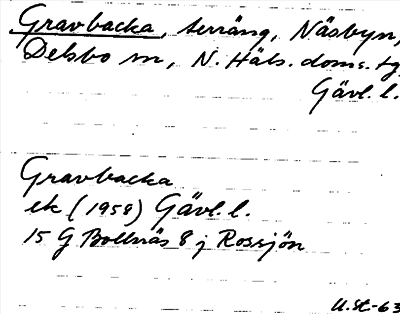 Gravbacka, terräng, Näsbyn,
Delsbo sn, N. Häls. doms. tg,
Gävl. l.
Gravbacka
ek (1958) Gävl. l.
15 G Bollnäs 8 j Rossjön
U. St. -63